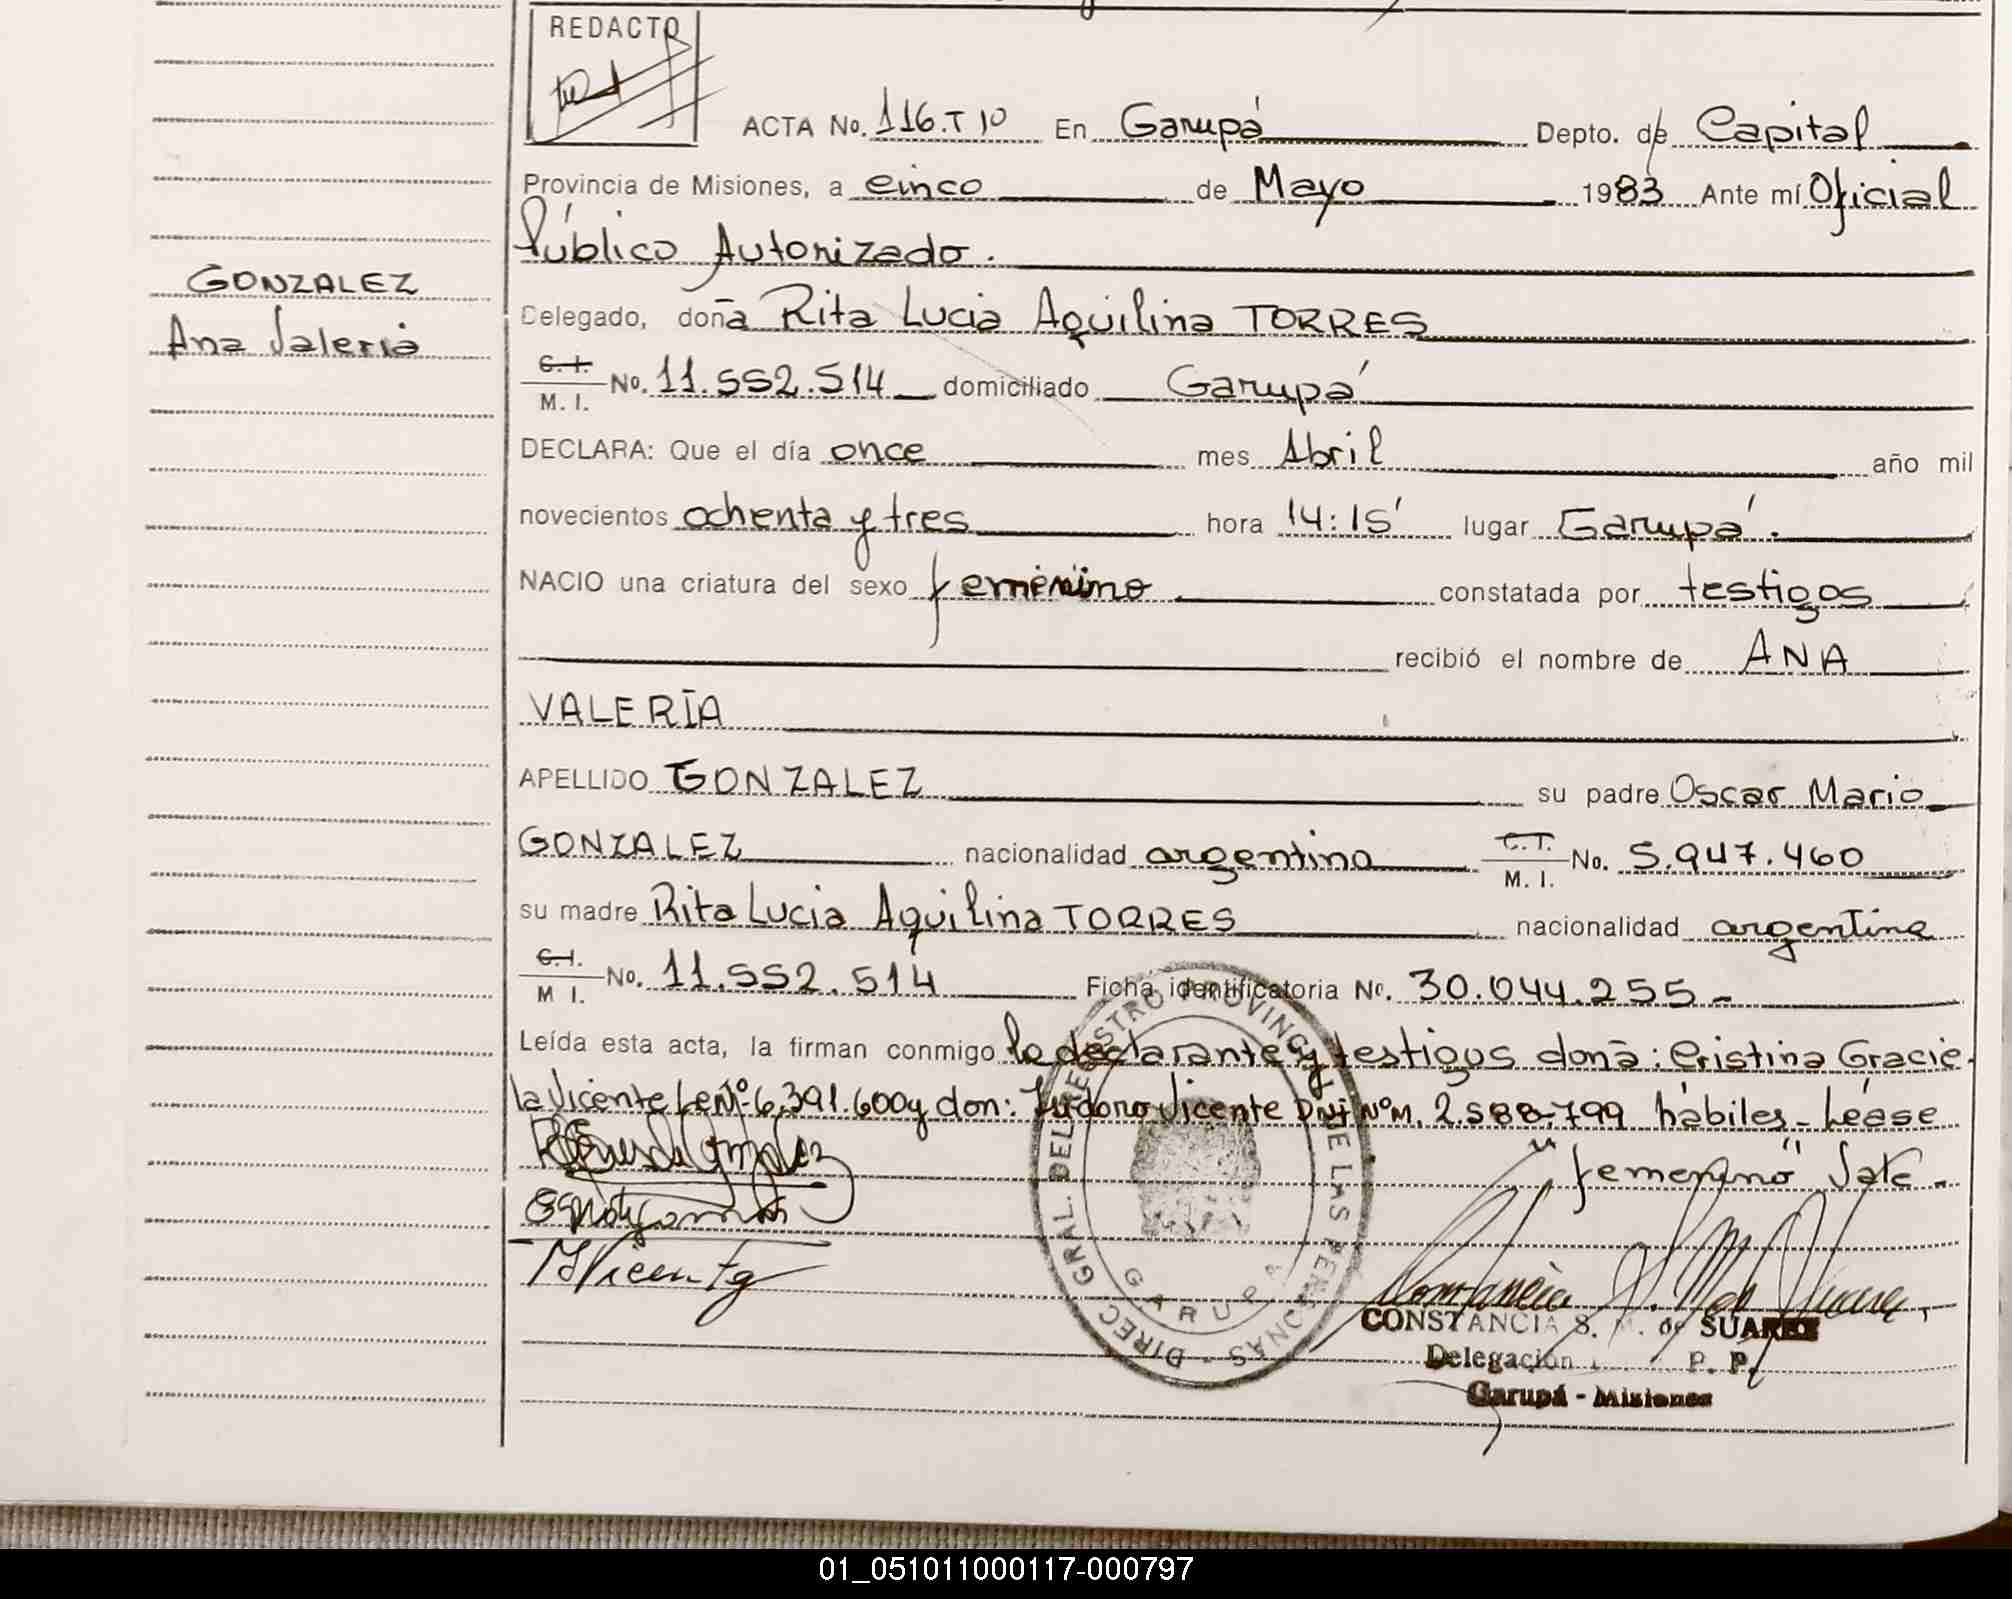 REDACTO
ACTA No. 116.T 10 En Garupá Depto. de Capital
Provincia de Misiones, a cinco de Mayo 1983 Ante mí Oficial
Público Autorizado.
GONZALEZ
Ana Valeria
Delegado, doña Rita Lucia Aquilina TORRES
C.I. M. I. No. 11.552.514 domiciliado Garupá
DECLARA: Que el día once mes Abril año mil
novecientos ochenta y tres hora 14:15' lugar Garupá.
NACIO una criatura del sexo femenino constatada por testigos
recibió el nombre de ANA
VALERIA
APELLIDO GONZALEZ su padre Oscar Mario
GONZALEZ nacionalidad argentina C.I. M. I. No. 5.947.460
su madre Rita Lucia Aquilina TORRES nacionalidad argentina
C.I. M I. No. 11.552.514 Ficha identificatoria No. 30.044.255-
Leída esta acta, la firman conmigo la declarante y testigos doña: Cristina Gracie-
la Vicente Le Nº 6.391.600 y don: Vicente DNI Nº M. 2.588.799 hábiles- Léase
"femenino" Vale-
DIREC. GRAL. DEL REGISTRO PROVINCIAL DE LAS PERSONAS -
GARUPA
Vicente
CONSTANCIA S. M. de SUAREZ
Delegación P. P.
Garupá - Misiones
01_051011000117-000797